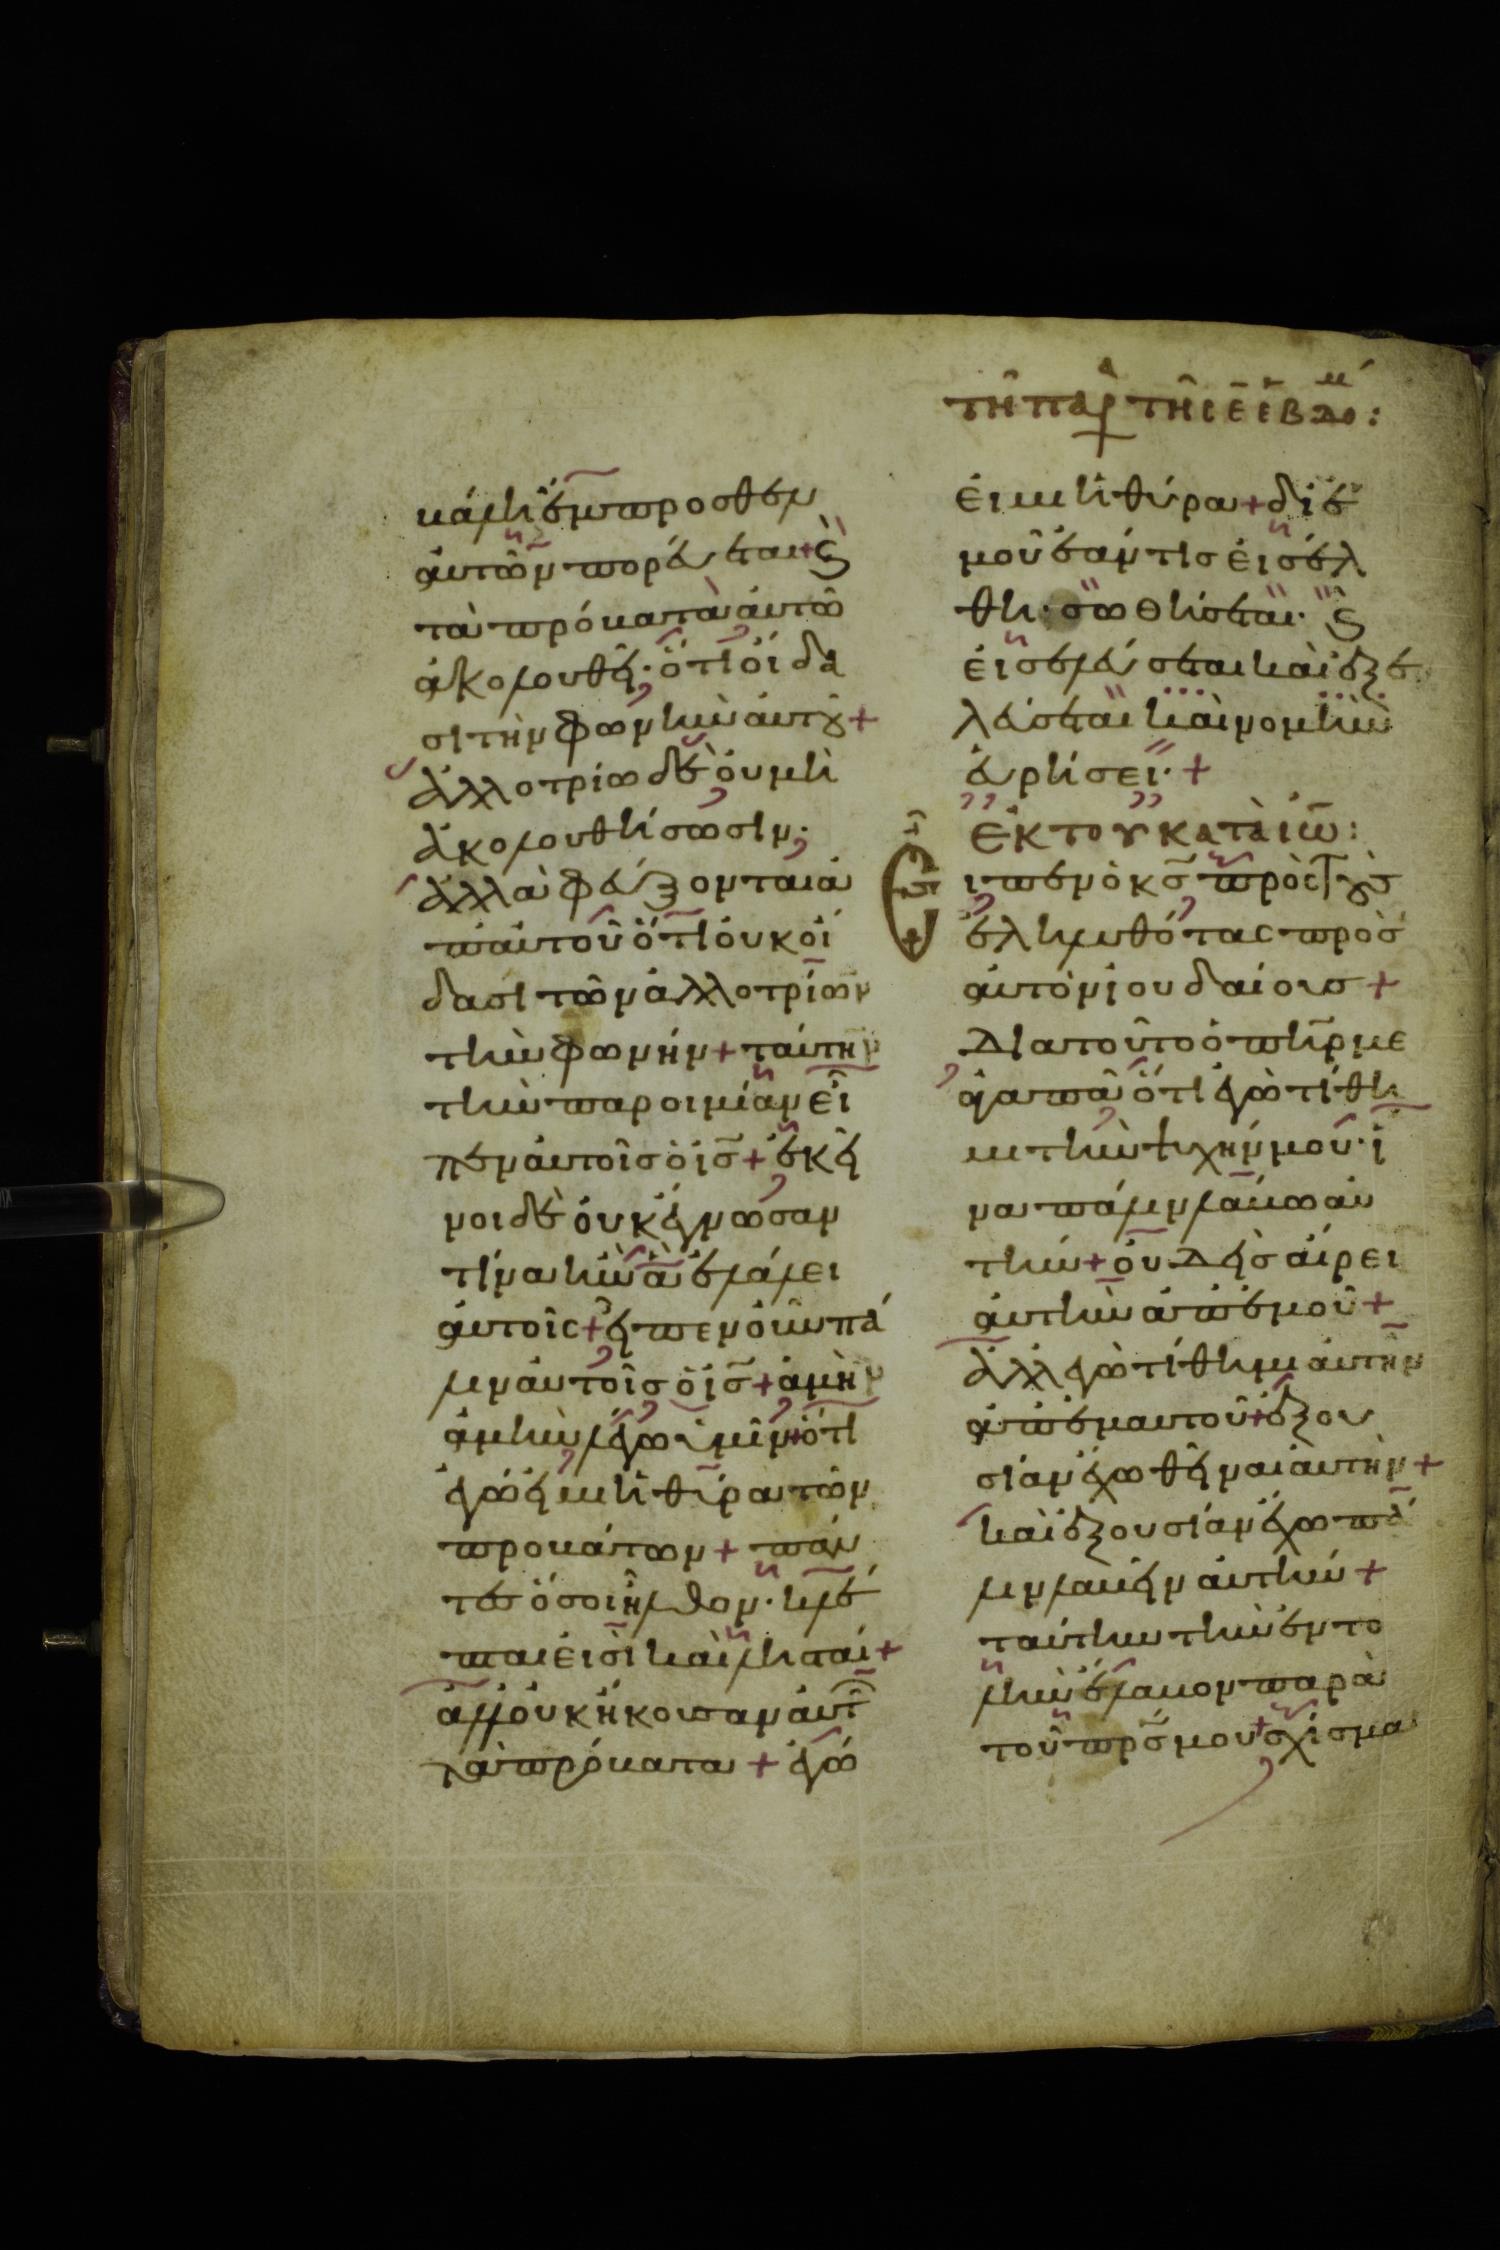 τῆ παρ τῆς ε ἑβδο:
κάλῆ ἔμπροσθεν
αὐτῶν πορεύεται + ϗ
τὰ πρόβατα αὐτῶ
ἀκολουθεῖ· ὅτι οἴδα
σι τὴν φωνὴν αὐτοῦ +
ἀλλοτρίω δὲ οὐ μὴ
ἀκολουθήσωσιν·
ἀλλὰ φεύξονται ἀ
π' αὐτοῦ ὅτι οὐκ οἴ
δασι τῶν ἀλλοτρίων
τὴν φωνήν + ταύτην
τὴν παροιμίαν εἶ
πεν αὐτοῖς ὁ ις + ἐκεῖ
νοι δὲ οὐκ ἔγνωσαν
τίνα ἦν ἃ ἐλάλει
αὐτοῖς + εἶπεν οὖν πά
λιν αὐτοῖς ὁ ις + ἀμὴν
ἀμὴν λέγω ὑμῖν + ὅτι
ἐγώ εἰμι ἡ θύρα τῶν
προβάτων + πάν
τες ὅσοι ἦλθον· κλέ
πται εἰσὶ καὶ λησταί +
ἀλλ' οὐκ ἤκουσαν αὐτ
τὰ πρόβατα + ἐγώ
εἰμι ἡ θύρα + δι' ἐ
μοῦ ἐάν τις εἰσέλ
θη· σωθήσεται· ϗ
εἰσελεύσεται καὶ ἐξε
λεύσεται καὶ νομὴν
εὑρήσει· +
ἐκ τοῦ κατὰ ιω:
Εἶπεν ὁ κς πρὸς τοὺς
ἐληλυθότας πρὸς
αὐτὸν ἰουδαίους +
Διατοῦτο ὁ πηρ με
ἀγαπᾶ ὅτι ἐγὼ τίθη
μι τὴν ψυχήν μου· ἵ
να πάλιν λάβω αὐ
τήν + οὐδεὶς αἴρει
αὐτὴν ἀπ' ἐμοῦ +
ἀλλ' ἐγὼ τίθημι αὐτὴν
ἀπ' ἐμαυτοῦ + ἐξου
σίαν ἔχω θεῖναι αὐτὴν +
καὶ ἐξουσίαν ἔχω πά
λιν λαβεῖν αὐτήν +
ταύτην τὴν ἐντο
λὴν ἔλαβον παρὰ
τοῦ πρς μου + σχίσμα